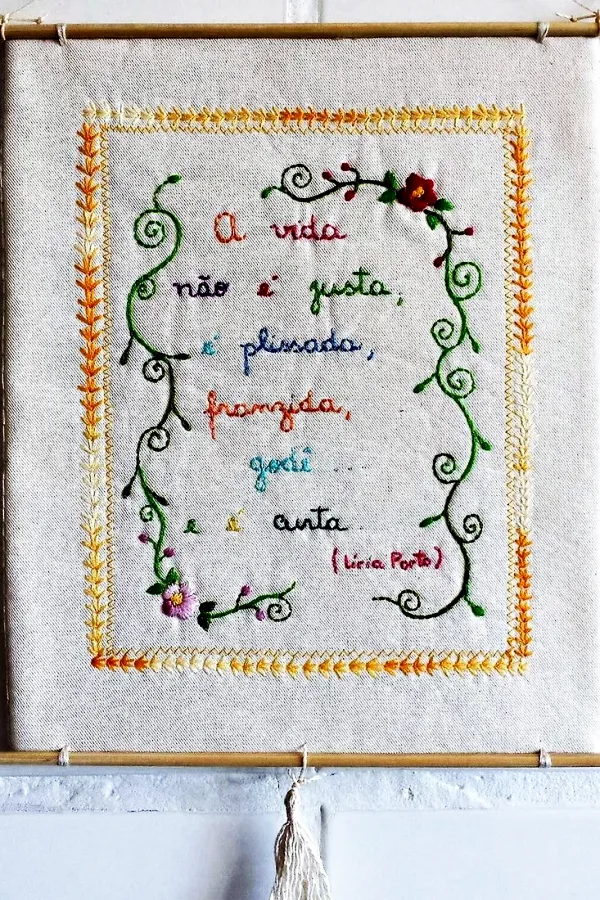 A vida
não é justa,
é plissada,
franzida,
godê ...
e é curta.
(Líria Porto)